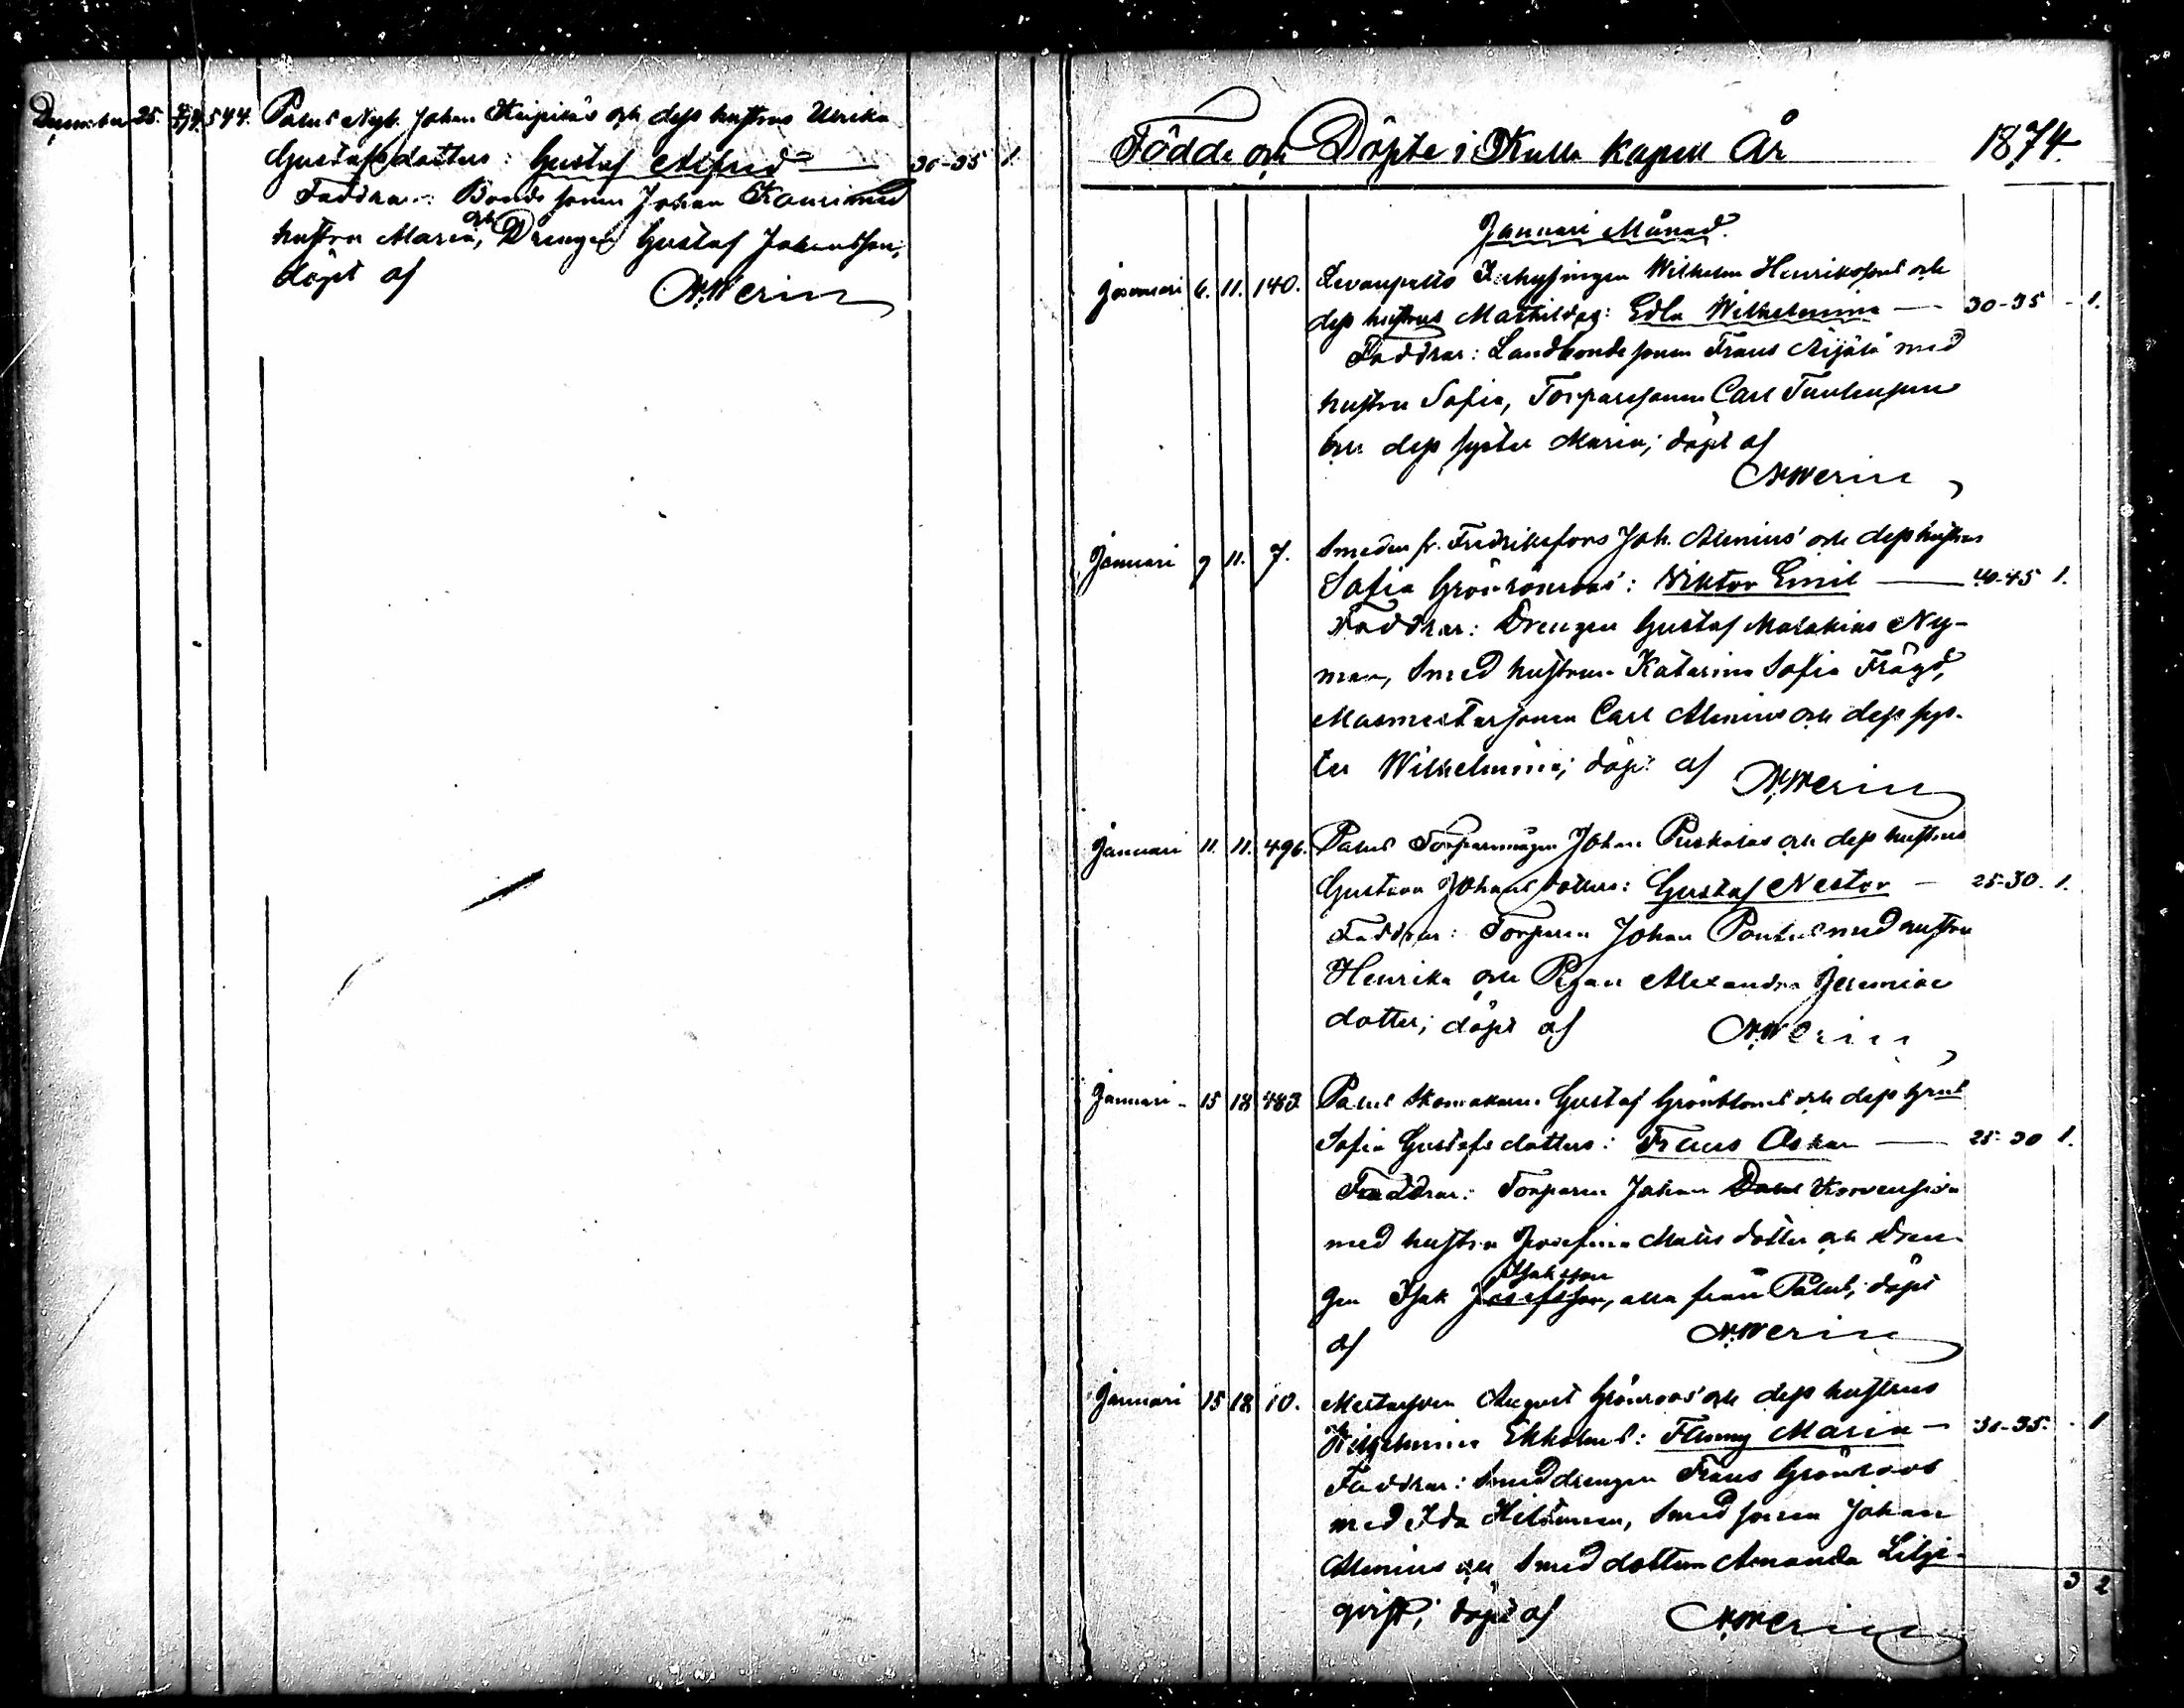 December 25. 4/1 74. 544. Palus Nyb. Johan Knipilä's och dess hustrus Ulrika
Gustafsdotters: Gustaf Alfred — 30-35 1.
Faddrar: Bondesonen Johan Kauri med
hustru Maria, och Drengen Gustaf Johansson,
döpt af
N. Merin
Födde och Döpte i Kulla kapell År 1874.
Januari Månad.
Januari 6. 11. 140. Inhysingen Wilhelm Henrikssons och
dess hustrus Mathildas: Edla Wilhelmina — 30-35 - 1.
Faddrar: Landbondesonen Frans Äijälä med
hustru Sofia, Torparesonen Carl
och dess syster Maria; döpt af
N. Merin
Januari 9 11. 7. Smeden fr. Fredriksfors Joh. Alenius' och dess hustrus
Sofia Grönroos': Viktor Emil — 40-45 1.
Faddrar: Drengen Gustaf Malakias Ny-
man, Smedhustrun Katarina Sofia Frägd,
Masmästarsonen Carl Alenius och dess sys-
ter Wilhelmina; döpt af N. Merin
Januari 11. 11. 496. Palus Torparmågen Johan Puskalas och dess hustrus
Gustava Johansdotters: Gustaf Nestor — 25-30. 1.
Faddrar: Torparen Johan Pontus med hustru
Henrika och Pigan Alexandra Jeremiae
dotter; döpt af N. Merin
Januari - 15 18 483 Palus Skomakaren Gustaf Grönbloms och dess hust.
Sofia Gustafsdotters: Frans Oskar — 25-30 1.
Faddrar: Torparen Johan Korvensivu
med hustru Josefina Matsdotter och Dren-
gen Isak Josefsson Isaksson, alla från Palus; döpt
af N. Merin
Januari 15 18 10. Mästarsven August Grönroos' och dess hustrus
Wilhelmina Ekholms: Fanny Maria — 30-35. - 1
Faddrar: Smeddrengen Frans Grönroos
med Ida Hildman, Smedsonen Johan
Alenius och Smeddottern Amanda Lilje-
qvist; döpt af N. Merin
3 2